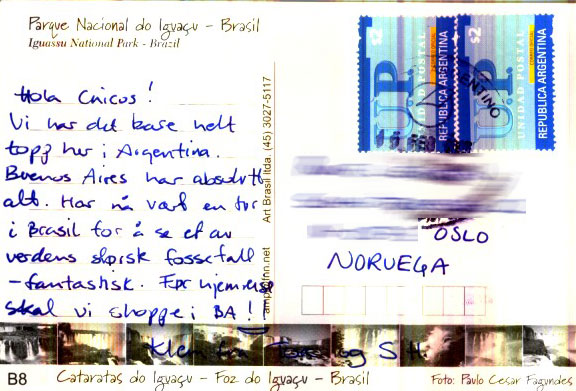 Parque Nacional do Iguaçu - Brasil
Iguassu National Park - Brazil
Hola Chicos!
Vi har det bare helt
topp her i Argentina.
Buenos Aires har absolutt
alt. Har nå vært en tur
i Brasil for å se et av
verdens største fossefall
- fantastisk. Før hjemreise
skal vi shoppe i BA!!
Klem fra
Art Brasil ltda. (45) 3027-5117
$2
U.P.
UNIDAD POSTAL
REPUBLICA ARGENTINA
$2
U.P.
UNIDAD POSTAL
REPUBLICA ARGENTINA
OSLO
NORUEGA
B8
Cataratas do Iguaçu - Foz do Iguaçu - Brasil
Foto: Paulo Cesar Fagundes